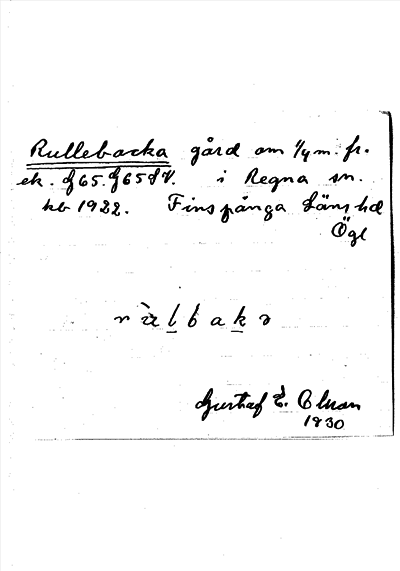 Rullebacka gård om 1/4 m. fr.
ek. f65. f65 SV. i Regna sn.
kb 1922. Finspånga Läns hd
Ögl
rùlbakə
Gustaf E. Olson
1930